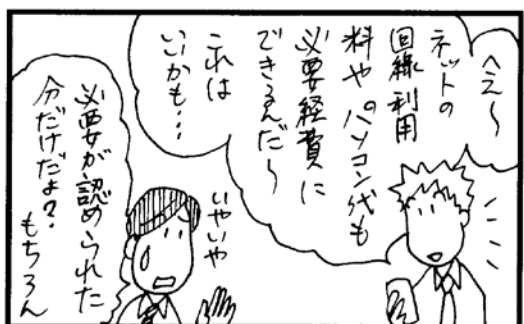 へえ〜
ネットの
回線利用
料や パソコン代も
必要経費に
できるんだ〜
これは
いいかも…
いやいや
必要が認められた
分だけだよ？
もちろん